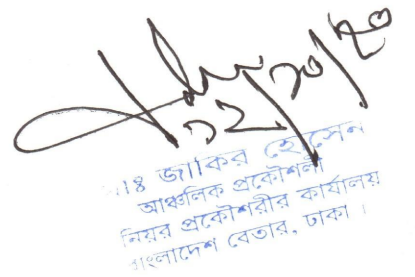 ১২/১০/২০
মোঃ জাকির হোসেন
আঞ্চলিক প্রকৌশলী
সিনিয়র প্রকৌশরীর কার্যালয়
বাংলাদেশ বেতার, ঢাকা ।